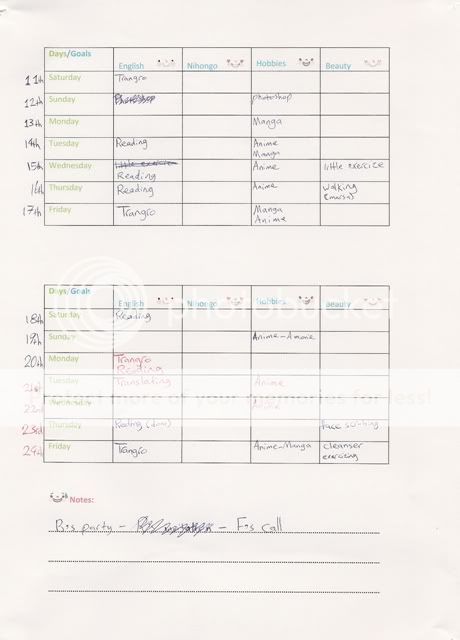 Days/Goals English Nihongo Hobbies Beauty
11th Saturday Trangro
12th Sunday photoshop
13th Monday Manga
14th Tuesday Reading Anime
Manga
15th Wednesday little exercize Anime little exercize
Reading
16th Thursday Reading Anime walking
17th Friday Trangro Manga
Anime
Days/Goals English Nihongo Hobbies Beauty
18th Saturday Reading
19th Sunday Anime-
20th Monday Trangro
Reading
21st Tuesday Translating Anime
22nd Wednesday Anime
23rd Thursday
29th Friday Trangro Anime-Manga cleanser
exercizing
photobucket
Protect more of your memories for less!
Notes:
B's party - - F's call